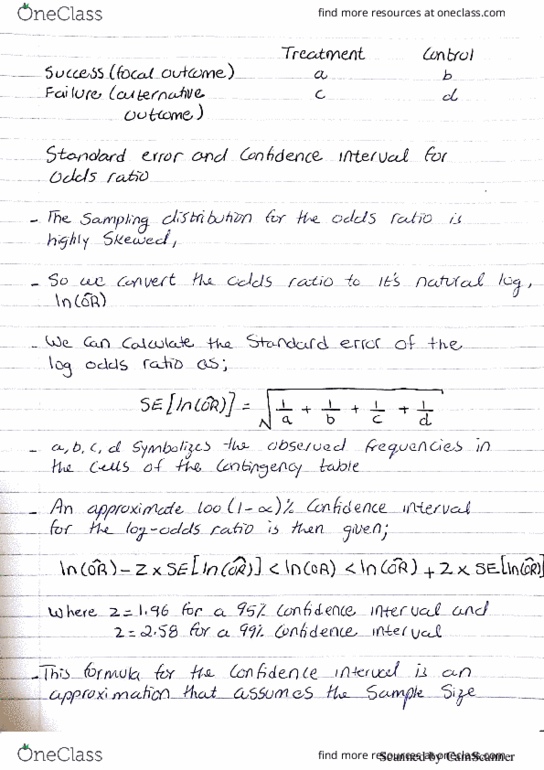 OneClass find more resources at oneclass.com
Treatment Control
Success (focal outcome) a b
Failure (alternative c d
outcome)
Standard error and Confidence interval for
odds ratio
- The Sampling distribution for the odds ratio is
highly skewed,
- So we convert the odds ratio to it's natural log,
ln(ÔR)
- We can calculate the Standard error of the
log odds ratio as;
SE[ln(ÔR)] = √(1/a + 1/b + 1/c + 1/d)
- a, b, c, d symbolizes the observed frequencies in
the cells of the contingency table
- An approximate 100(1-α)% Confidence interval
for the log-odds ratio is then given;
ln(ÔR) - Z × SE[ln(ÔR)] < ln(OR) < ln(ÔR) + Z × SE[ln(ÔR)]
Where z=1.96 for a 95% Confidence interval and
z=2.58 for a 99% Confidence interval
- This formula for the Confidence interval is an
approximation that assumes the Sample Size
OneClass find more resources at oneclass.com
Scanned by CamScanner